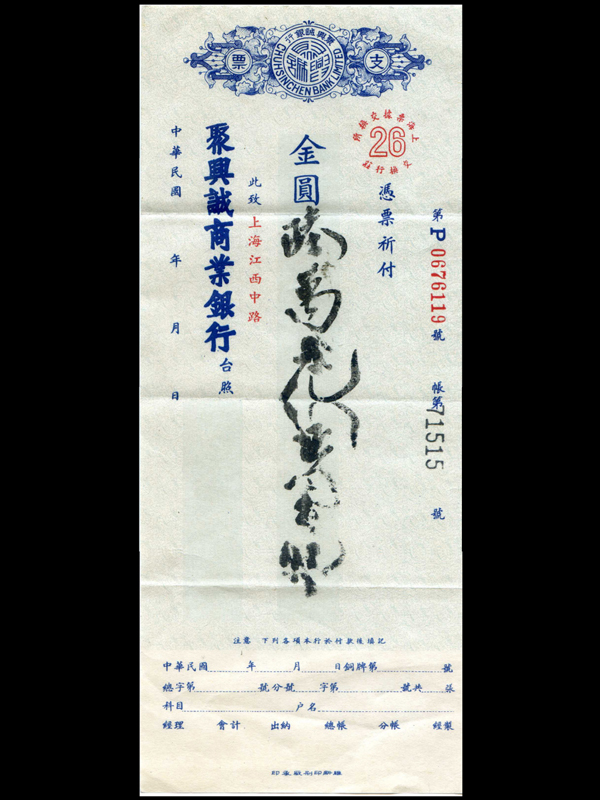 支票
聚興誠銀行
CHUHSINCHEN BANK LIMITED
上海票據交換所
26
第P 0676119號
帳第71515號
憑票祈付
金圓陸萬
此致上海江西中路
聚興誠商業銀行台照
中華民國 年 月 日
注意 下列各項本行於付款後填記
中華民國 年 月 日銅牌第 號
總字第 號分號 字第 號共 張
科目 户名
經理 會計 出納 總帳 分帳 經製